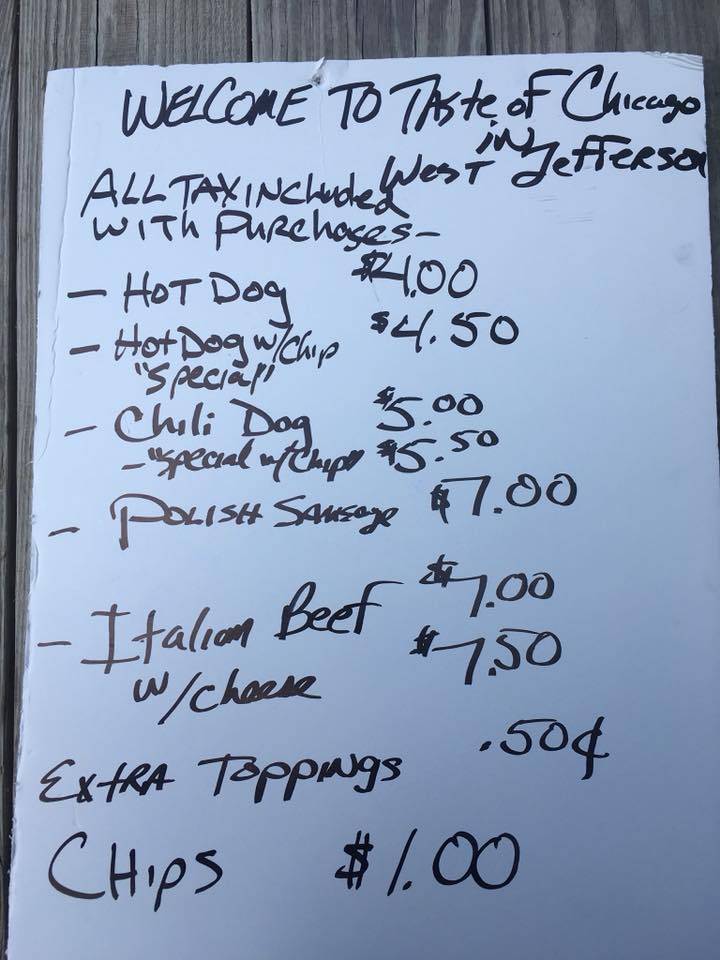 WELCOME TO TAste of Chicago
in
West Jefferson
ALL TAX INCluded
WITH PURChases-
- HOT DOG $4.00
- Hot Dog w/Chip $4.50
"Special"
- Chili Dog $5.00
- "special w/Chips" $5.50
- POLISH SAUSage $7.00
- Italian Beef $7.00
w/cheese $7.50
EXTRA TOPPINGS .50¢
CHIPS $1.00